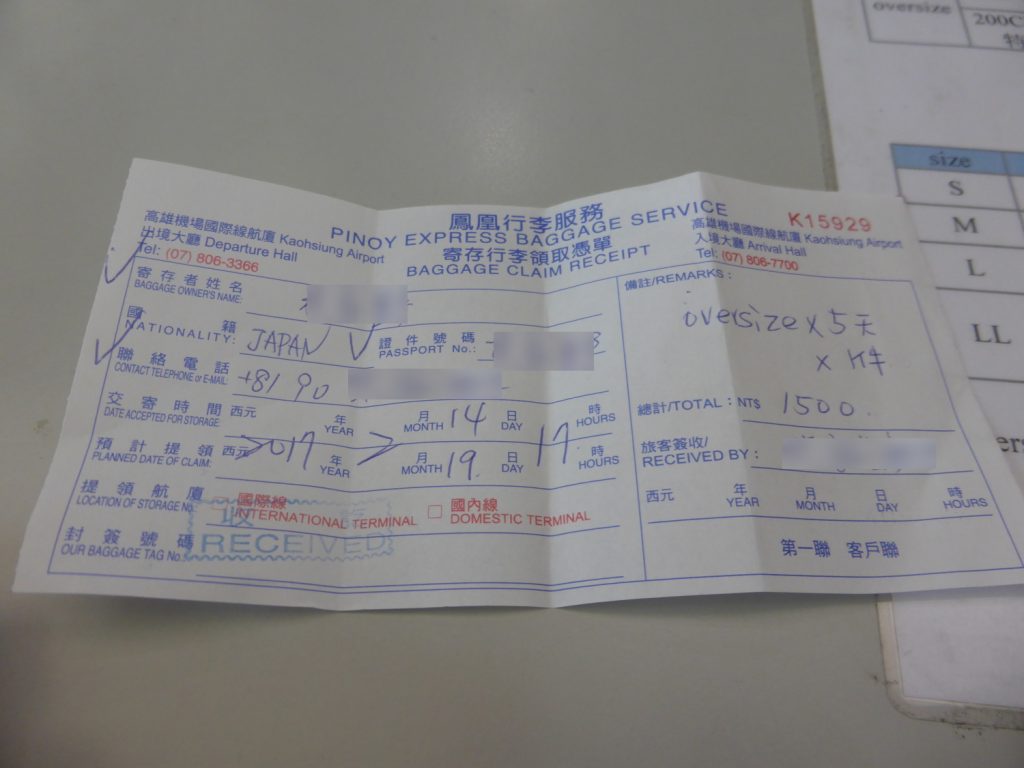 oversize
200C
特
size
S
M
L
LL
鳳凰行李服務
PINOY EXPRESS BAGGAGE SERVICE
寄存行李領取憑單
BAGGAGE CLAIM RECEIPT
高雄機場國際線航廈 Kaohsiung Airport
出境大廳 Departure Hall
Tel: (07) 806-3366
K15929
高雄機場國際線航廈 Kaohsiung Airport
入境大廳 Arrival Hall
Tel: (07) 806-7700
寄存者姓名
BAGGAGE OWNER'S NAME:
國籍
NATIONALITY: JAPAN
證件號碼
PASSPORT No.: 8
聯絡電話
CONTACT TELEPHONE or E-MAIL: +81 90
交寄時間 西元 年 月 14 日 時
DATE ACCEPTED FOR STORAGE: YEAR MONTH DAY HOURS
預計提領 西元 2017 年 月 19 日 17 時
PLANNED DATE OF CLAIM: YEAR MONTH DAY HOURS
提領航廈 國際線 □ 國內線
LOCATION OF STORAGE No. INTERNATIONAL TERMINAL DOMESTIC TERMINAL
收
RECEIVED
封簽號碼
OUR BAGGAGE TAG No.
備註/REMARKS:
oversize x 5天
x 1件
總計/TOTAL: NT$ 1500.
旅客簽收/
RECEIVED BY:
西元 年 月 日 時
YEAR MONTH DAY HOURS
第一聯 客戶聯